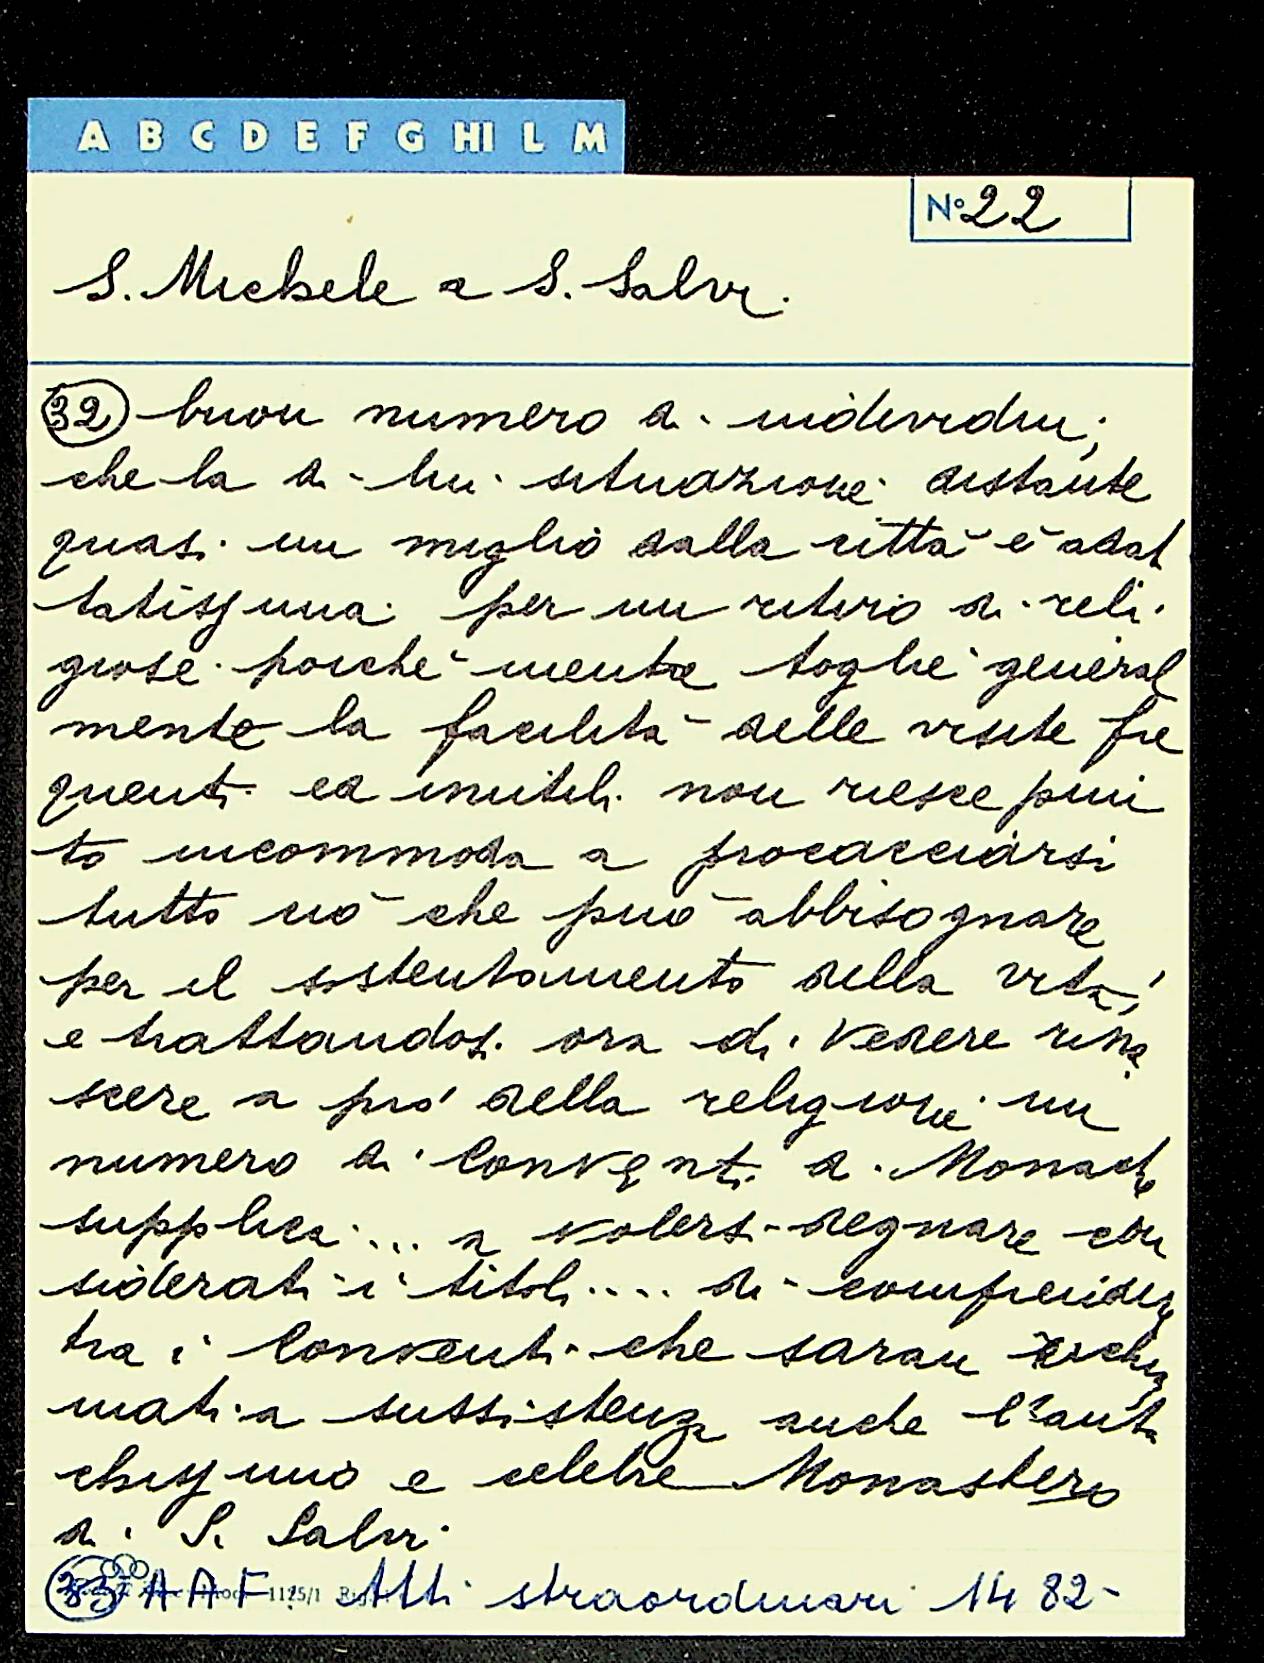 A B C D E F G HI L M
N° 22
S. Michele a S. Salvi.
32 buon numero di individui;
che la di lui situazione distante
quasi un miglio dalla città è adat
tatissima per un ritiro di reli
giose poiché mentre toglie general
mente la facilità delle visite fre
quenti ed inutili non riesce pun
to incommoda a procacciarsi
tutto ciò che può abbisognare
per il sostentamento della vita,
e trattandosi ora di vedere rina
scere a pro' della religione un
numero di Conventi di Monache
supplica ... a volersi degnare con
siderati i titoli .... di comprendere
tra i Conventi che saran richia
mati a sussistenza anche l'anti
chissimo e celebre Monastero
di S. Salvi.
33 A A F. Atti straordinari 1482-
1125/1